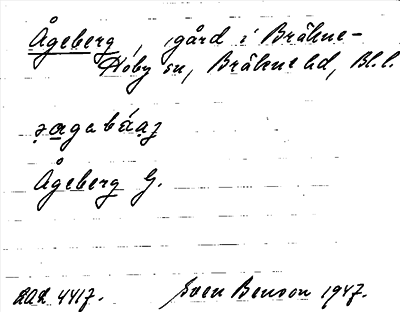 Ågeberg, gård i Bräkne-
Hoby sn, Bräkne hd, Bl. l.
Ågeberg G.
4417. Sven Benson 1947.